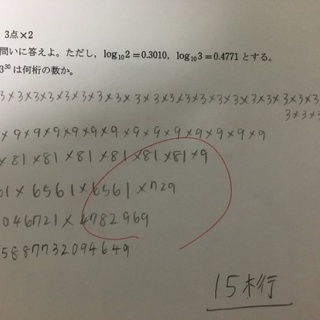 3点×2
問いに答えよ。ただし，log₁₀2＝0.3010，log₁₀3＝0.4771とする。
3³⁰は何桁の数か。
3×3×3×3×3×3×3×3×3×3×3×3×3×3×3×3×3×3×3×3×
3×3×3×
×9×9×9×9×9×9×9×9×9×9×9×9×9
×81×81×81×81×81×81×9
61×6561×6561×729
046721×4782969
5887732094649
15桁